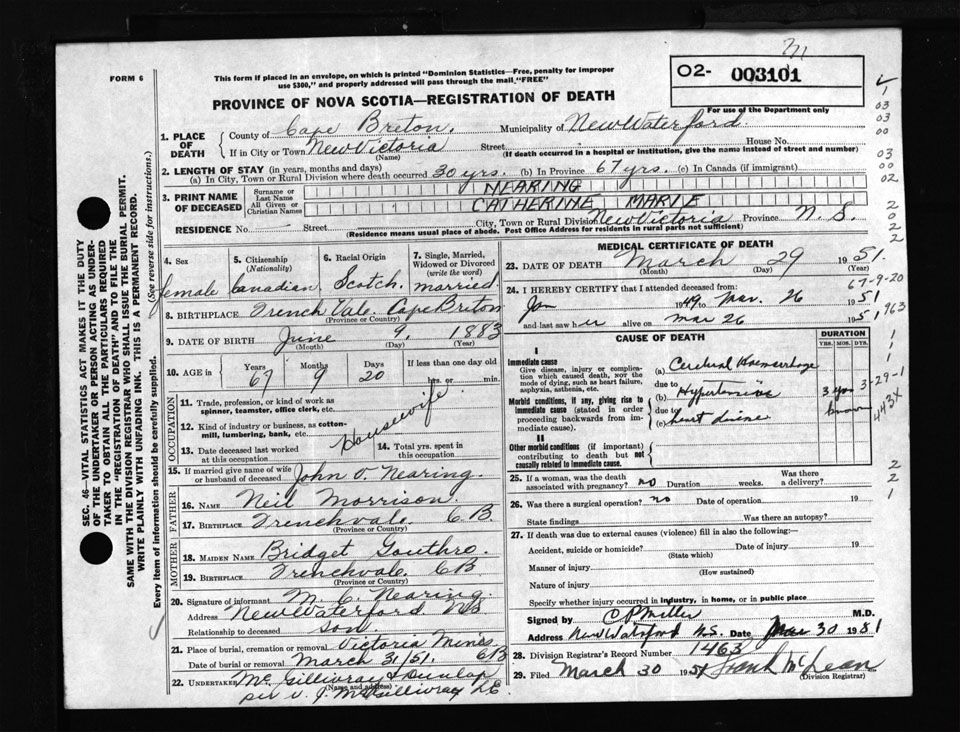 FORM 6
This form if placed in an envelope, on which is printed "Dominion Statistics—Free, penalty for improper
use $300," and properly addressed will pass through the mail "FREE"
O2- 003101
For use of the Department only
PROVINCE OF NOVA SCOTIA—REGISTRATION OF DEATH
1. PLACE OF DEATH
County of Cape Breton. Municipality of New Waterford.
If in City or Town New Victoria Street House No.
(Name) (If death occurred in a hospital or institution, give the name instead of street and number)
2. LENGTH OF STAY (in years, months and days)
(a) In City, Town or Rural Division where death occurred 30 yrs. (b) In Province 67 yrs. (c) In Canada (if immigrant)
3. PRINT NAME OF DECEASED
Surname or Last Name NEARING
All Given or Christian Names CATHERINE MARIE
RESIDENCE No. Street City, Town or Rural Division New Victoria Province N. S.
(Residence means usual place of abode. Post Office Address for residents in rural parts not sufficient)
4. Sex female
5. Citizenship (Nationality) Canadian
6. Racial Origin Scotch.
7. Single, Married, Widowed or Divorced (write the word) married.
8. BIRTHPLACE French Vale. Cape Breton
(Province or Country)
9. DATE OF BIRTH June 9, 1883
(Month) (Day) (Year)
10. AGE in Years 67 Months 9 Days 20 If less than one day old hrs. or min.
OCCUPATION
11. Trade, profession, or kind of work as spinner, teamster, office clerk, etc.
12. Kind of industry or business, as cotton-mill, lumbering, bank, etc.
Housewife
13. Date deceased last worked at this occupation
14. Total yrs. spent in this occupation
15. If married give name of wife or husband of deceased John V Nearing.
FATHER
16. NAME Neil Morrison.
17. BIRTHPLACE Frenchvale. C.B.
(Province or Country)
MOTHER
18. MAIDEN NAME Bridget Gouthro.
19. BIRTHPLACE Frenchvale CB
(Province or Country)
20. Signature of informant M. C. Nearing.
Address New Waterford NS
Relationship to deceased son
21. Place of burial, cremation or removal Victoria Mines CB
Date of burial or removal March 31/51.
22. UNDERTAKER McGillivray & Dunlap
(Name and address)
per J. McGillivray
MEDICAL CERTIFICATE OF DEATH
23. DATE OF DEATH March 29 1951.
(Month) (Day) (Year)
67-9-20
24. I HEREBY CERTIFY that I attended deceased from:
Jan 1949 to Mar. 26 1951
and last saw her alive on Mar 26 1951
963
CAUSE OF DEATH
DURATION
YRS. MOS. DYS.
I
Immediate cause
Give disease, injury or complication which caused death, not the mode of dying, such as heart failure, asphyxia, asthenia, etc.
(a) Cerebral Haemorrhage
due to
(b) Hypertensive 3 yrs
Morbid conditions, if any, giving rise to immediate cause (stated in order proceeding backwards from immediate cause).
due to
(c) heart
3-29-1
443X
II
Other morbid conditions (if important) contributing to death but not causally related to immediate cause.
25. If a woman, was the death associated with pregnancy? no Duration weeks. Was there a delivery?
26. Was there a surgical operation? no Date of operation 19
State findings Was there an autopsy?
27. If death was due to external causes (violence) fill in also the following:—
Accident, suicide or homicide? Date of injury 19
(State which)
Manner of injury
(How sustained)
Nature of injury
Specify whether injury occurred in industry, in home, or in public place
Signed by C P Miller M.D.
Address New Waterford N.S. Date Mar 30 1951
28. Division Registrar's Record Number 1463
29. Filed March 30 1951 Frank McLean
(Division Registrar)
SEC. 46—VITAL STATISTICS ACT MAKES IT THE DUTY
OF THE UNDERTAKER OR PERSON ACTING AS UNDER-
TAKER TO OBTAIN ALL THE PARTICULARS REQUIRED
IN THE "REGISTRATION OF DEATH" AND TO FILE THE
SAME WITH THE DIVISION REGISTRAR WHO SHALL ISSUE THE BURIAL PERMIT.
WRITE PLAINLY WITH UNFADING INK. THIS IS A PERMANENT RECORD.
Every item of information should be carefully supplied. (See reverse side for instructions.)
1
03
03
00
03
00
02
2
0
2
2
1
1
1
2
2
1